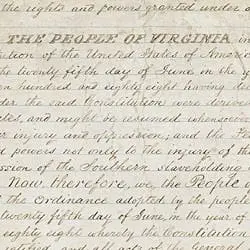 the rights and powers granted under a
THE PEOPLE OF VIRGINIA in
ution of the United States of America
the twenty fifth day of June in the y
en hundred and eighty eight having dec
der the said Constitution were derive
tes, and might be resumed whensoever
ir injury and oppression, and the F
d powers not only to the injury of th
ssion of the Southern slaveholding
Now, therefore, we, the People
t the Ordinance adopted by the people
fifth day of June, in the year of
eighty eight whereby the Constitut
ratified, and all acts of the General